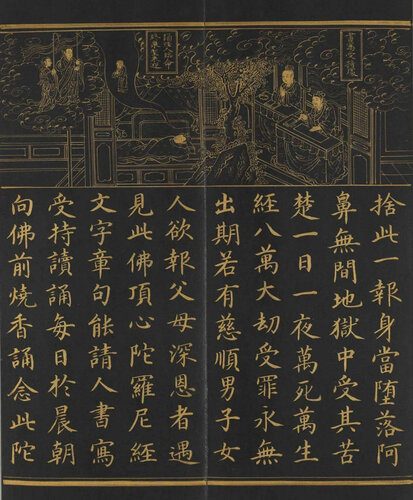 捨此一報身當墮落阿
鼻無間地獄中受其苦
楚一日一夜萬死萬生
經八萬大劫受罪永無
出期若有慈順男子女
人欲報父母深恩者遇
見此佛頂心陀羅尼經
文字章句能請人書寫
受持讀誦每日於晨朝
向佛前燒香誦念此陀